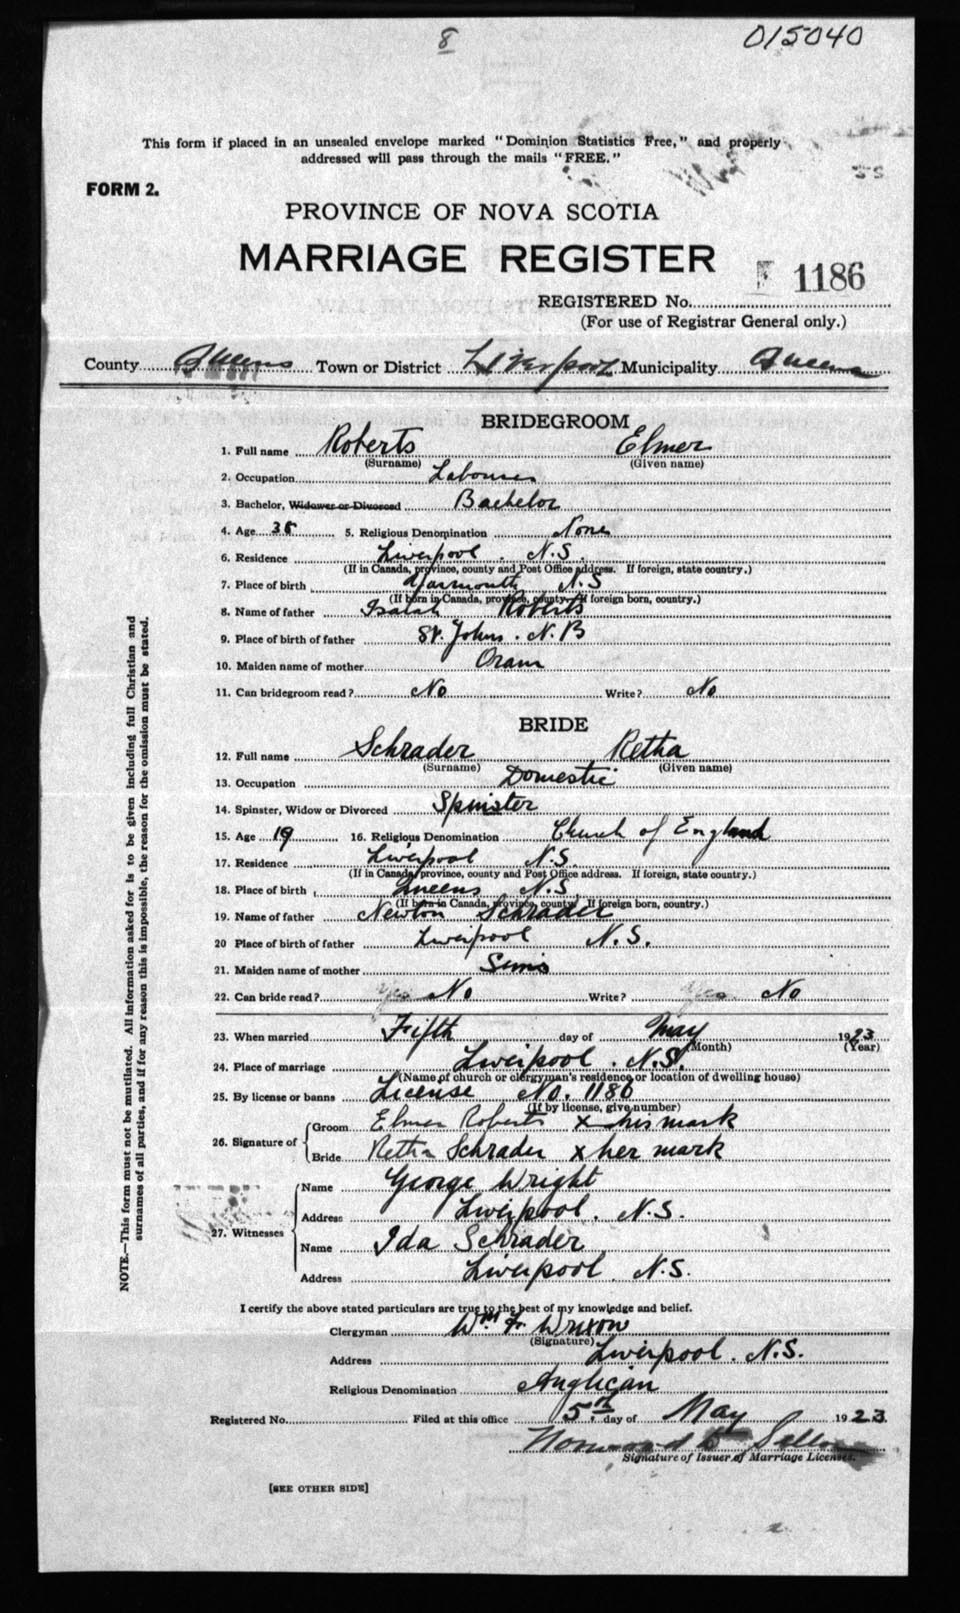 8
015040
This form if placed in an unsealed envelope marked "Dominion Statistics Free," and properly
addressed will pass through the mails "FREE."
FORM 2.
PROVINCE OF NOVA SCOTIA
MARRIAGE REGISTER
1186
REGISTERED No.
(For use of Registrar General only.)
County Queens Town or District Liverpool Municipality Queens
BRIDEGROOM
1. Full name Roberts Elmer
(Surname) (Given name)
2. Occupation Labourer
3. Bachelor, Widower or Divorced Bachelor
4. Age 38 5. Religious Denomination None
6. Residence Liverpool. N.S.
(If in Canada, province, county and Post Office address. If foreign, state country.)
7. Place of birth Yarmouth N.S
(If born in Canada, province, county. If foreign born, country.)
8. Name of father Isaiah Roberts
9. Place of birth of father St. Johns. N.B
10. Maiden name of mother Oram
11. Can bridegroom read? No Write? No
BRIDE
12. Full name Schrader Retha
(Surname) (Given name)
13. Occupation Domestic
14. Spinster, Widow or Divorced Spinster
15. Age 19 16. Religious Denomination Church of England
17. Residence Liverpool N.S.
(If in Canada, province, county and Post Office address. If foreign, state country.)
18. Place of birth Queens N.S.
(If born in Canada, province, county. If foreign born, country.)
19. Name of father Newton Schrader
20 Place of birth of father Liverpool N.S.
21. Maiden name of mother Sims
22. Can bride read? Yes No Write? Yes No
23. When married Fifth day of May 1923
(Month) (Year)
24. Place of marriage Liverpool. N.S.
(Name of church or clergyman's residence or location of dwelling house)
25. By license or banns License No. 1186
(If by license, give number)
26. Signature of Groom Elmer Roberts x his mark
Bride Retha Schrader x her mark
27. Witnesses
Name George Wright
Address Liverpool. N.S.
Name Ida Schrader
Address Liverpool. N.S.
I certify the above stated particulars are true to the best of my knowledge and belief.
Clergyman Wm F. Wrixon
(Signature)
Address Liverpool. N.S.
Religious Denomination Anglican
Registered No. Filed at this office 5th day of May 1923.
Signature of Issuer of Marriage Licenses.
[SEE OTHER SIDE]
NOTE.—This form must not be mutilated. All information asked for is to be given including full Christian and
surnames of all parties, and if for any reason this is impossible, the reason for the omission must be stated.